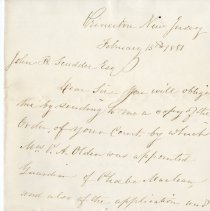 Princeton New Jersey
February 15th 1881
John R Scudder Esq
Dear Sir You will oblige
me by sending to me a copy of the
Order, of your Court, by which
Mrs E. A. Olden was appointed
Guardian of Phoebe Maclean
and also of the application and